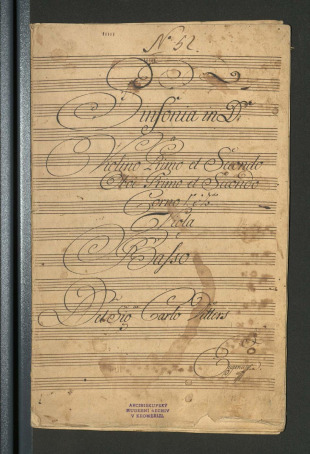 No 52.
Sinfonia in D.
a
Violino Primo et Secondo
Oboe Primo et Secondo
Corno 1. et 2do
Viola
e
Basso
Del Sig Carlo Ditters
ARCIBISKUPSKÝ
HUDEBNÍ ARCHIV
V KROMĚŘÍŽI